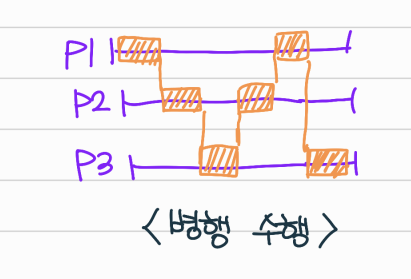 P1
P2
P3
<병행 수행>